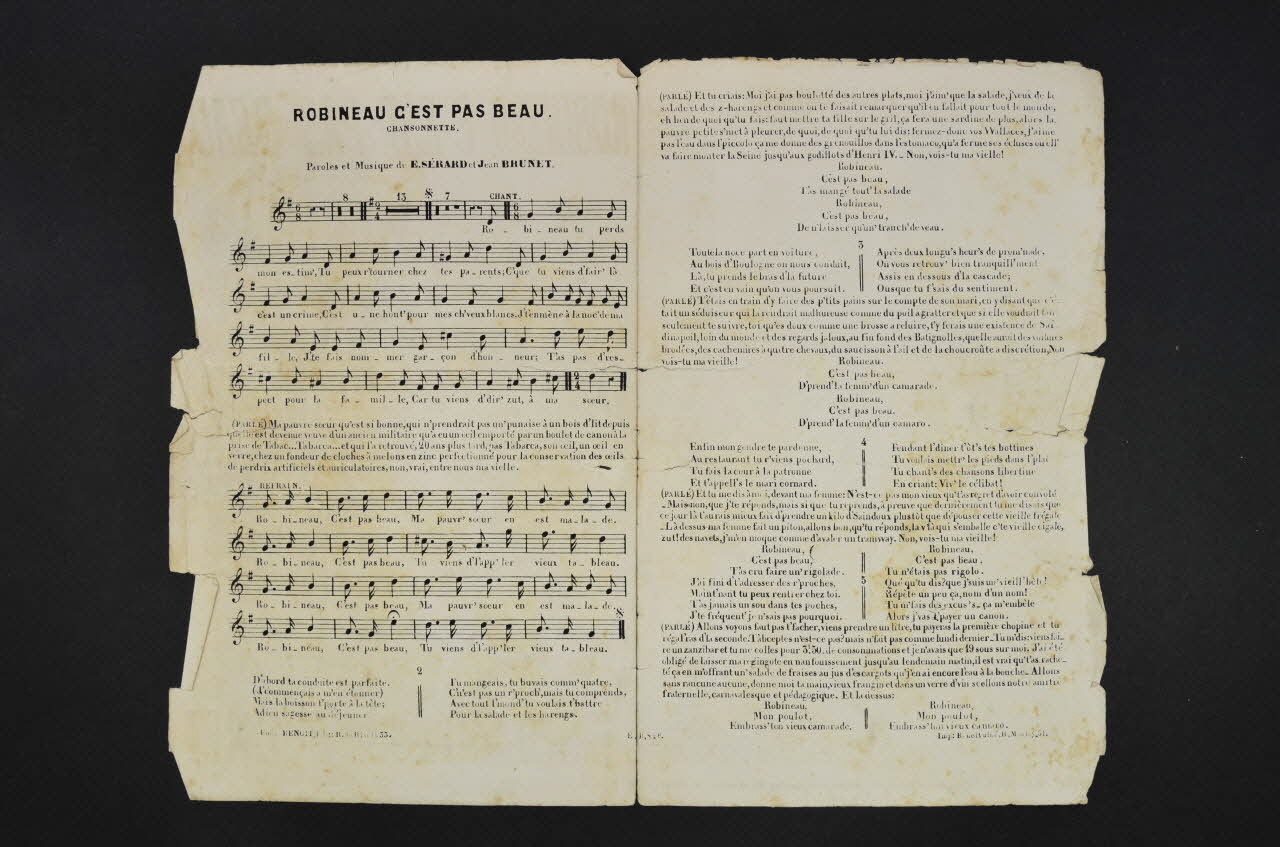 ROBINEAU C'EST PAS BEAU.
CHANSONNETTE.
Paroles et Musique de E. SÉRARD et Jean BRUNET.
8 13 7 CHANT.
Ro _ bi _ neau tu perds
mon es_tim', Tu peux r'tourner chez tes pa_rents; C'que tu viens d'fair' là
c'est un crime, C'est u _ ne hont' pour mes ch'veux blancs. J't'enmène à la noc' de ma
fil _ le, J'te fais nom _ mer gar _ çon d'hon _ neur; T'as pas d'res_
pect pour la fa _ mil _ le, Car tu viens d'dir' zut, à ma sœur.
(PARLÉ) Ma pauvre sœur qu'est si bonne, qui n'prendrait pas un' punaise à un bois d'lit depuis
qu'elle est devenue veuve d'un ancien militaire qu'a eu un œil emporté par un boulet de canon à la
prise de Tabac... Tabarca... et qui l'a retrouvé, 20 ans plus tard, pas Tabarca, son œil, un œil en
verre, chez un fondeur de cloches à melons en zinc perfectionné pour la conservation des œils
de perdrix artificiels et auriculatoires, non, vrai, entre nous ma vieille.
REFRAIN.
Ro _ bi _ neau, C'est pas beau, Ma pauvr' sœur en est ma _ la _ de.
Ro _ bi _ neau, C'est pas beau, Tu viens d'l'app'ler vieux ta _ bleau.
Ro _ bi _ neau, C'est pas beau, Ma pauvr' sœur en est ma _ la _ de.
Ro _ bi _ neau, C'est pas beau, Tu viens d'l'app'ler vieux ta _ bleau.
2
D'abord ta conduite est parfaite.
(J'commençais à m'en étonner)
Mais la boisson t'porte à la tête;
Adieu sagesse au déjeuner
Tu mangeais, tu buvais comm' quatre,
C'n'est pas un r'proch', mais tu comprends,
Avec tout l'mond' tu voulais t'battre
Pour la salade et les harengs.
BENOIT
(PARLÉ) Et tu criais: Moi j'ai pas boulotté des autres plats, moi j'aim' que la salade, j'veux de la
salade et des z-harengs et comme on te faisait remarquer qu'il en fallait pour tout le monde,
eh ben de quoi qu'tu fais: faut mettre ta fille sur le gril, ça fera une sardine de plus, alors la
pauvre petite s'met à pleurer, de quoi, de quoi qu'tu lui dis: fermez-donc vos Wallaces, j'aime
pas l'eau dans l'piccolo ça me donne des grenouilles dans l'estomac, qu'a ferme ses écluses ou ell'
va faire monter la Seine jusqu'aux godillots d'Henri IV. _ Non, vois-tu ma vieille!
Robineau,
C'est pas beau,
T'as mangé tout' la salade
Robineau,
C'est pas beau,
De n'laisser qu'un' tranch' de veau.
3
Toute la noce part en voiture,
Au bois d'Boulogne on nous conduit,
Là, tu prends le bras d'la future
Et c'est en vain qu'on vous poursuit.
Après deux longu's heur's de prom'nade
On vous retrouv' bien tranquill'ment
Assis en dessous d'la cascade;
Ousque tu f'sais du sentiment.
(PARLÉ) T'étais en train d'y faire des p'tits pains sur le compte de son mari, en y disant que c'é-
tait un séducteur qui la rendrait malhureuse comme du poil à gratter et que si elle voudrait ton
seulement te suivre, toi qu'es doux comme une brosse à reluire, t'y ferais une existence de Sar
dinapoil, loin du monde et des regards jaloux, au fin fond des Batignolles, quelle aurait des
brodées, des cachemires à quatre chevaux, du saucisson à l'ail et de la choucroûte à discrétion, Non
vois-tu ma vieille!
Robineau,
C'est pas beau,
D'prend' la femm' d'un camarade.
Robineau,
C'est pas beau.
D'prend' la femm' d'un camaro.
4
Enfin mon gendre te pardonne,
Au restaurant tu r'viens pochard,
Tu fais la cour à la patronne
Et t'appell's le mari cornard.
Pendant l'dîner t'ôt's tes bottines
Tu voulais mettr' les pieds dans l'plat
Tu chant's des chansons libertine
En criant: Viv' le célibat!
(PARLÉ) Et tu me dis à moi, devant ma femme: N'est-ce pas mon vieux qu't'as regret d'avoir convolé
_ Mais non, que j'te réponds, mais si que tu reprends, à preuve que dernièrement tu me disais que
ce jour là t'aurais mieux fait d'prendre un kilo d'Saindoux plustôt que d'épouser cette vieille frégate
_ Là dessus ma femme fait un piton, allons bon, qu'tu réponds, la v'là qui s'emballe c'te vieille cigale,
zut! des navets, j'm'en moque comme d'avaler un tramway. Non, vois-tu ma vieille!
Robineau,
C'est pas beau,
T'as cru faire un' rigolade.
Robineau,
C'est pas beau,
Tu n'étais pas rigolo.
5
J'ai fini d't'adresser des r'proches,
Maint'nant tu peux rentrer chez toi.
T'as jamais un sou dans tes poches,
J'te fréquent' je n'sais pas pourquoi.
Qué qu'tu dis? que j'suis un' vieill' bête!
Répète un peu ça, nom d'un nom!
Tu m'fais des excus's _ ça m'embête
Alors j'vas t'payer un canon.
(PARLÉ) Allons voyons faut pas t'facher, viens prendre un litre, tu payeras la première chopine et tu
régal'ras d'la seconde. T'acceptes n'est-ce pas? mais n'fait pas comme lundi dernier _ Tu m'dis: viens fai-
re un zanzibar et tu me colles pour 3f50. de consommations et je n'avais que 19 sous sur moi. J'ai été
obligé de laisser ma r'gingote en nanfouissement jusqu'au lendemain matin, il est vrai qu't'as rache-
té ça en m'offrant un' salade de fraises au jus d'escargots qu'j'en ai encore l'eau à la bouche _ Allons
sans rancune aucune, donne moi ta main, vieux frangin et dans un verre d'vin scellons notre amitié
fraternelle, carnavalesque et pédagogique. Et là dessus:
Robineau,
Mon poulot,
Embrass' ton vieux camarade.
Robineau,
Mon poulot,
Embrass' ton vieux camaro.